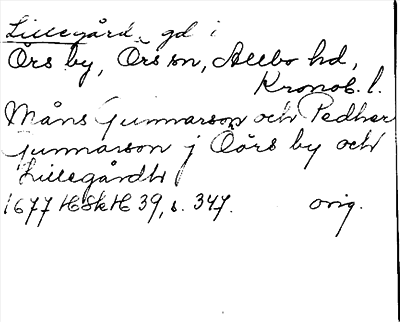 Lillegård, gd i
Örs by, Örs sn, Allbo hd,
Kronob. l.
Måns Gunnarson och Pedher
Gunnarson j Öörs by och
Lillegårdh
1677 HSkH 39, s. 347. orig.